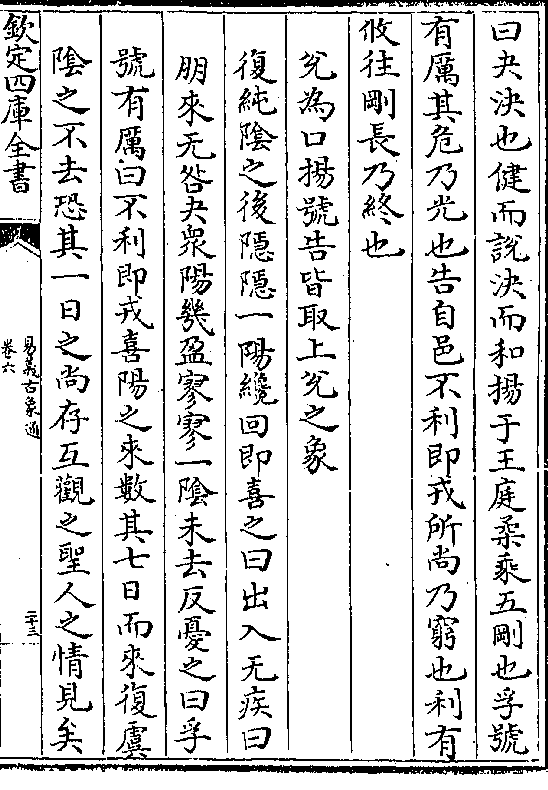 曰夬決也健而説決而和揚于王庭柔乘五剛也孚號
有厲其危乃光也告自邑不利即戎所尚乃窮也利有
攸往剛長乃終也
兌為口揚號告皆取上兌之象
復純陰之後隱隱一陽纔回即喜之曰出入无疾曰
朋來无咎夬衆陽幾盈寥寥一陰未去反憂之曰孚
號有厲曰不利即戎喜陽之來數其七日而來復虞
陰之不去恐其一日之尚存互觀之聖人之情見矣
欽定四庫全書
易義古象通
卷六
二十三